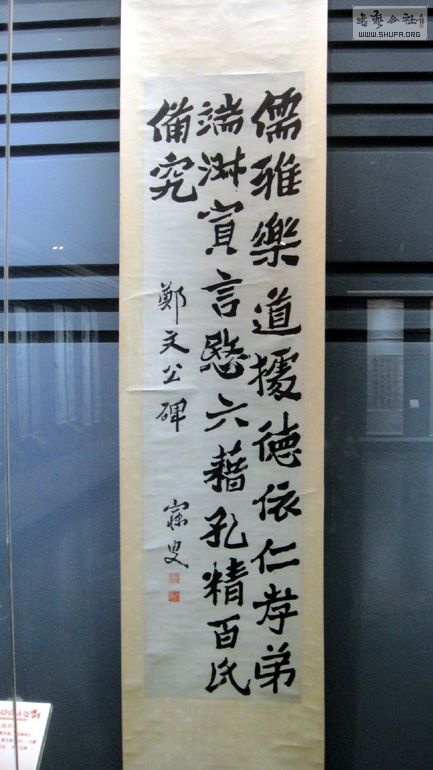 書藝公社
WWW.SHUFA.ORG
儒雅樂道據德依仁孝弟
端淑寡言愍六藉孔精百氏
備究
鄭文公碑
寐叟